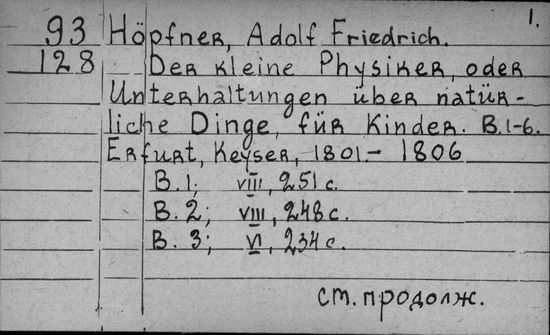 1.
93 Höpfner, Adolf Friedrich.
128 Der kleine Physiker, oder
Unterhaltungen über natür-
liche Dinge, für Kinder. B.1-6.
Erfurt, Keyser, 1801.- 1806
B. 1; VIII, 251 с.
B. 2; VIII, 248 с.
B. 3; VI, 234 с.
см. продолж.